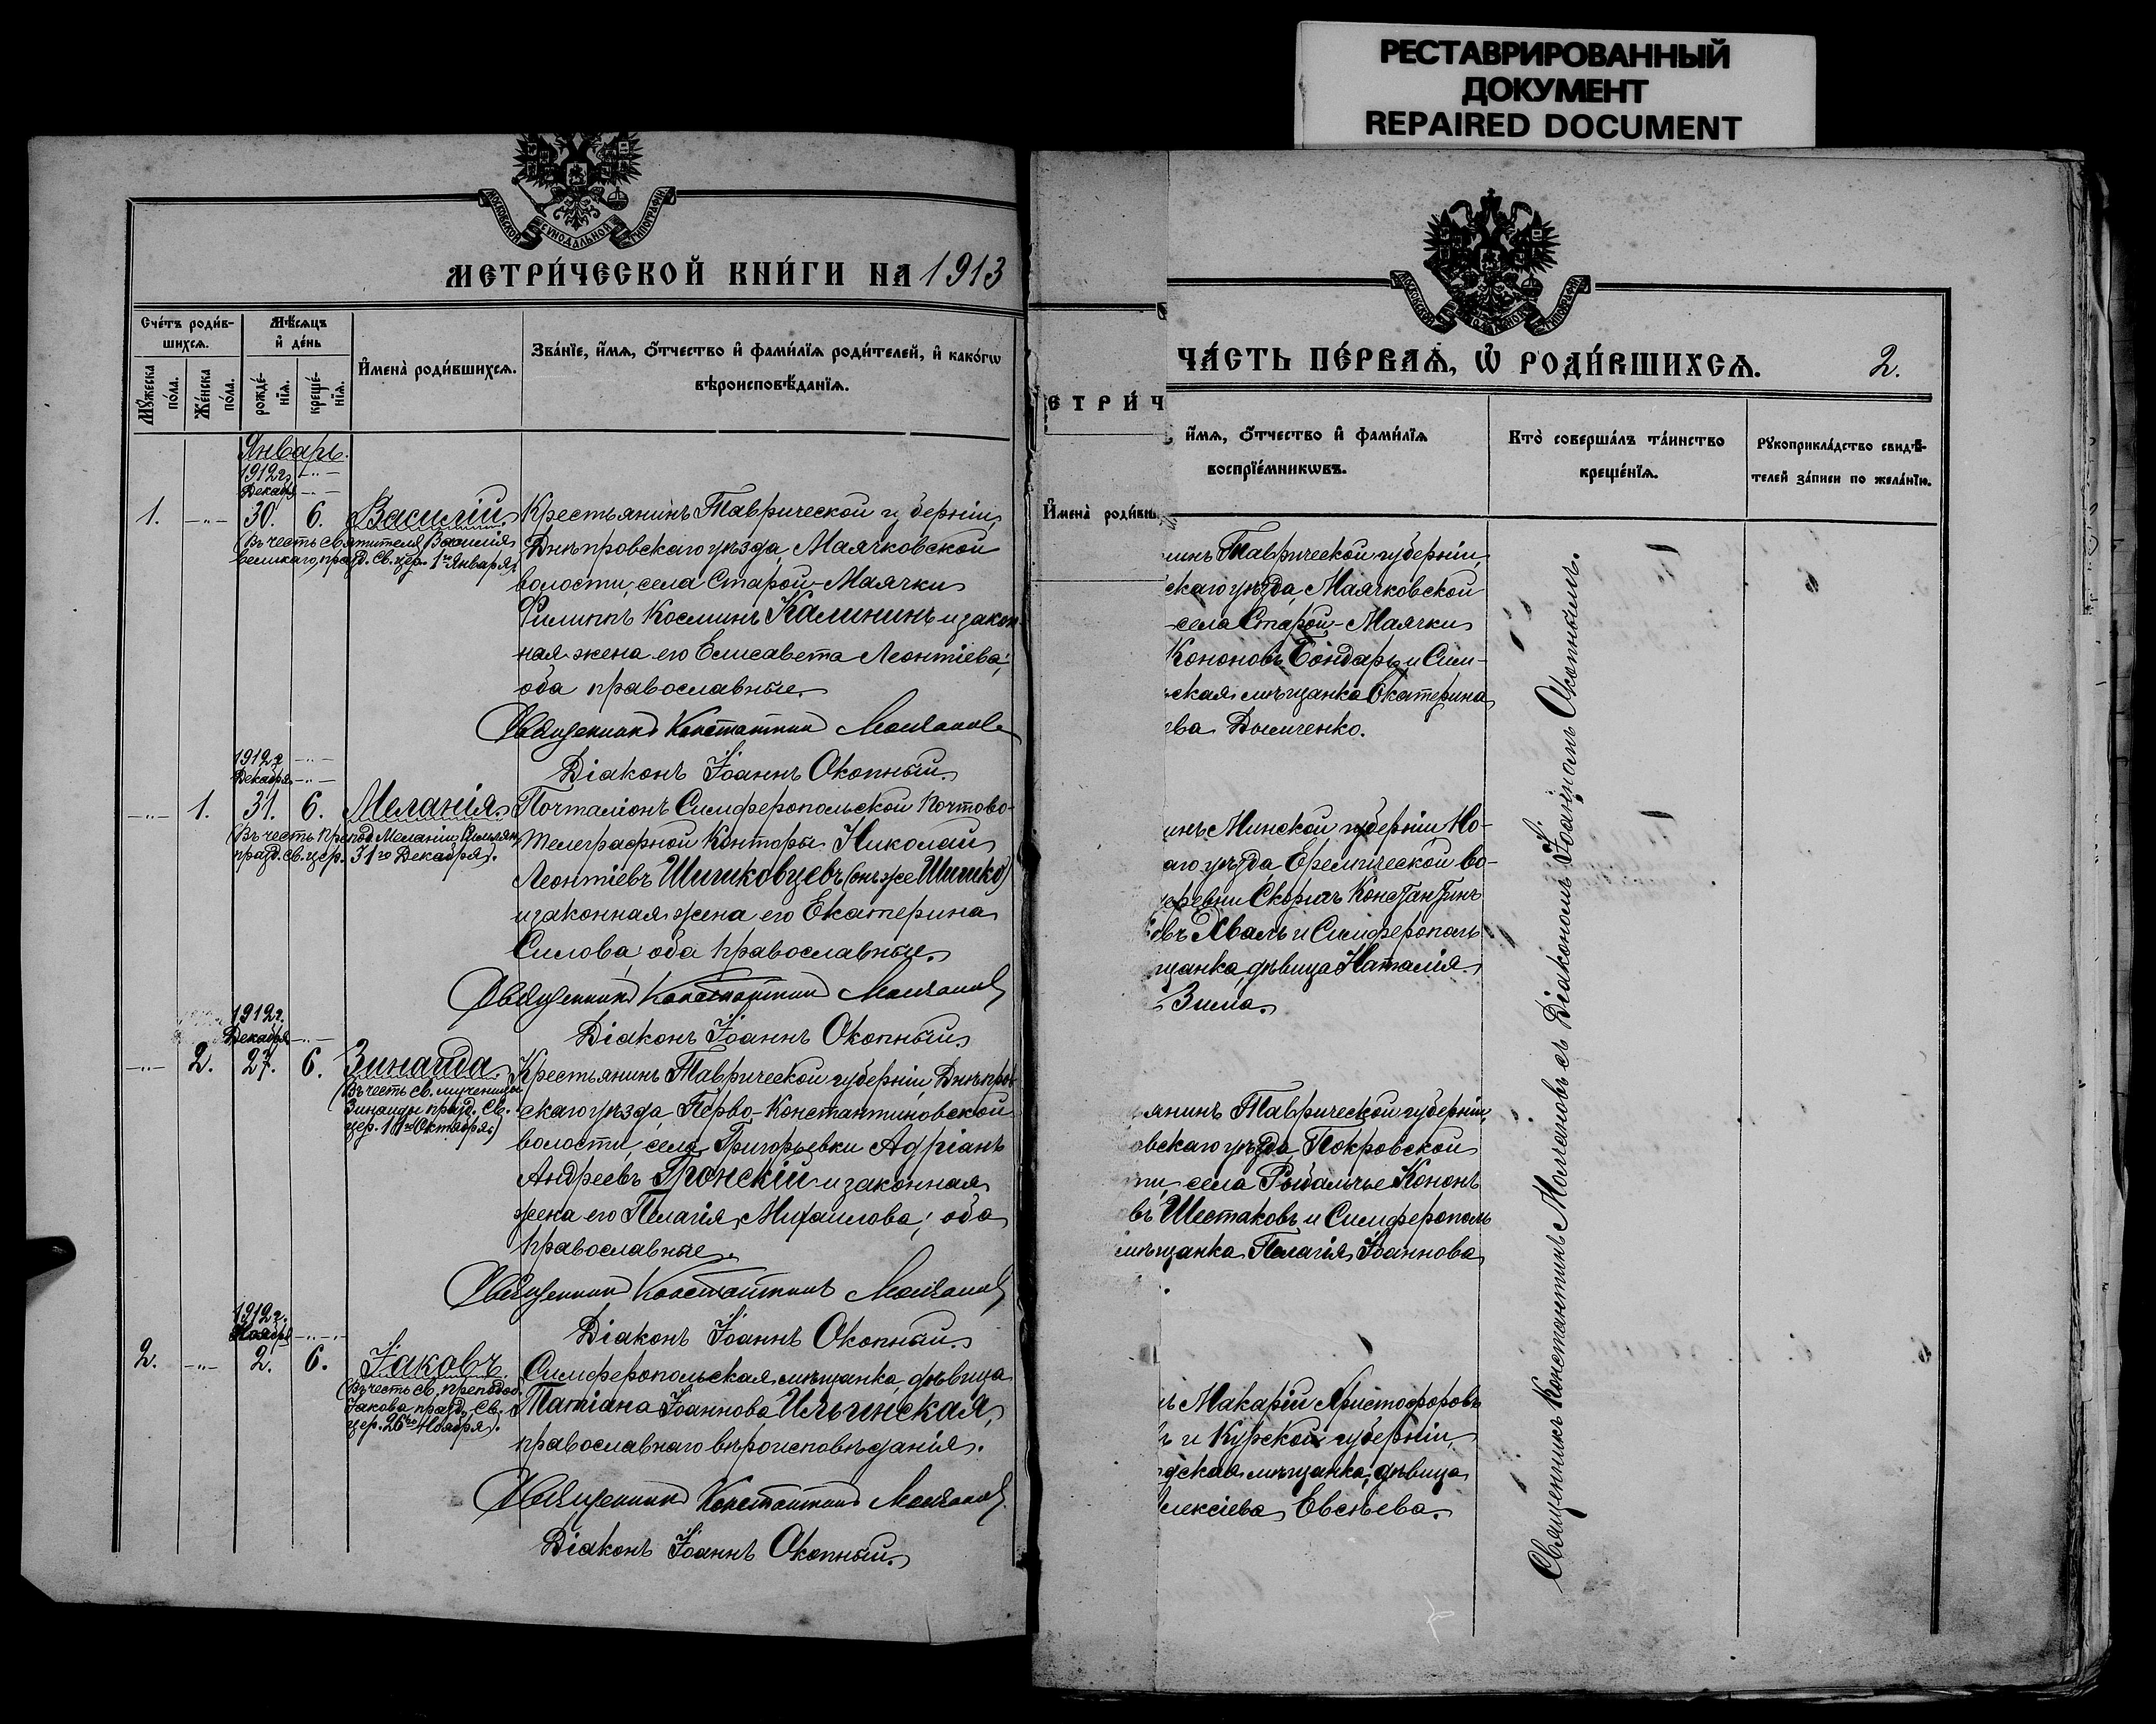 РЕСТАВРИРОВАННЫЙ
ДОКУМЕНТ
REPAIRED DOCUMENT
МОСКОВСКОЙ СѴНОДАЛЬНОЙ ТИПОГРАФІИ
МЕТРИ́ЧЕСКОЙ КНИ́ГИ НА 1913
Сче́тъ роди́в-
шихсѧ.
Мѣ́сѧцъ
и҆ де́нь
Мꙋ́жеска
по́ла.
Же́нска
по́ла.
рожде́-
нїѧ.
креще́-
нїѧ.
И҆мена̀ роди́вшихсѧ.
Зва́нїе, и҆́мѧ, ѻ҆́тчество и҆ фами́лїѧ роди́телей, и҆ како́гѡ
вѣроисповѣ́данїѧ.
Январь.
1912 г. -"-
Декабря -"-
1. -"- 30. 6. Василій.
(Въ честь святителя Василія
великаго, празд. св. цер. 1го Января)
Крестьянинъ Таврической губерніи,
Днѣпровскаго уѣзда, Маячковской
волости, села Старой-Маячки
Филиппъ Косминъ Калининъ и закон-
ная жена его Елисавета Леонтіева;
оба православные.
Священникъ Константинъ Молчановъ
Діаконъ Іоаннъ Окопный.
1912 г. -"-
Декабря -"-
-"- 1. 31. 6. Меланія.
(Въ честь препод. Меланіи Римлян.
празд. св. цер. 31го Декабря).
Почталіонъ Симферопольской Почтово-
Телеграфной Конторы Николай
Леонтіевъ Шишковцевъ (онъ же Шишко)
и законная жена его Екатерина
Силова; оба православные.
Священникъ Константинъ Молчановъ
Діаконъ Іоаннъ Окопный.
1912 г.
Декабря -"-
-"- 2. 27. 6. Зинаида.
(Въ честь св. мученицы
Зинаиды празд. Св.
цер. 11го Октября)
Крестьянинъ Таврической губерніи, Днѣпров-
скаго уѣзда, Перво-Константиновской
волости, села Григорьевки Адріанъ
Андреевъ Гронскій и законная
жена его Пелагія Михаилова; оба
православные.
Священникъ Константинъ Молчановъ
Діаконъ Іоаннъ Окопный.
1912 г.
Ноября -"-
2. -"- 2. 6. Іаковъ.
(Въ честь св. преподоб.
Іакова празд. Св.
цер. 26го Ноября).
Симферопольская мѣщанка, дѣвица
Татіана Іоаннова Ильинская,
православнаго вѣроисповѣданія.
Священникъ Константинъ Молчановъ
Діаконъ Іоаннъ Окопный.
ЕТРИ́Ч
И҆мена̀ роди́вш
МОСКОВСКОЙ СѴНОДАЛЬНОЙ ТИПОГРАФІИ
ЧА́СТЬ ПЕ́РВАѦ, Ѡ҆ РОДИ́ВШИХСѦ.
2.
и҆́мѧ, ѻ҆́тчество и҆ фами́лїѧ
воспрїе́мникѡвъ.
Кто̀ соверша́лъ та́инство
креще́нїѧ.
Рꙋкоприкла́дство свидѣ́-
телей за́писи по жела́нїю.
инъ Таврической губерніи,
скаго уѣзда, Маячковской
села Старой-Маячки
Кононовъ Бондарь и Сим-
ская мѣщанка Екатерина
ева Дымченко.
инъ Минской губерніи Но-
аго уѣзда, Еремической во-
деревни Скоричъ Константинъ
овъ Хваль и Симферополь
щанка, дѣвица Наталія
Зима.
янинъ Таврической губерніи,
овскаго уѣзда, Покровской
ти, села Рыбальче Кононъ
въ Шестаковъ и Симферополь
мѣщанка Пелагія Іоаннова
ъ Макарій Христофоровъ
ъ и Курской губерніи,
дская мѣщанка, дѣвица
лексіева Евсѣева.
Священникъ Константинъ Молчановъ съ Діакономъ Іоанномъ Окопнымъ.